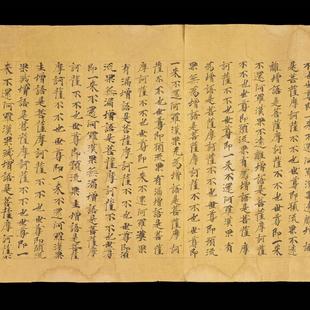 是菩薩摩訶薩不不也世尊即預流果不遠
離增語是菩薩摩訶薩不不也世尊即一來
不還阿羅漢果不遠離增語是菩薩摩訶薩
不不也世尊即預流果有為增語是菩薩摩
訶薩不不也世尊即一來不還阿羅漢果有
為增語是菩薩摩訶薩不不也世尊即預流
果無為增語是菩薩摩訶薩不不也世尊即
一來不還阿羅漢果無為增語是菩薩摩訶
薩不不也世尊即預流果有漏增語是菩薩
摩訶薩不不也世尊即一來不還阿羅漢果
有漏增語是菩薩摩訶薩不不也世尊即預
流果無漏增語是菩薩摩訶薩不不也世尊
即一來不還阿羅漢果無漏增語是菩薩摩
訶薩不不也世尊即預流果生增語是菩薩
摩訶薩不不也世尊即一來不還阿羅漢果
生增語是菩薩摩訶薩不不也世尊即預流
果滅增語是菩薩摩訶薩不不也世尊即一
來不還阿羅漢果滅增語是菩薩摩訶薩不